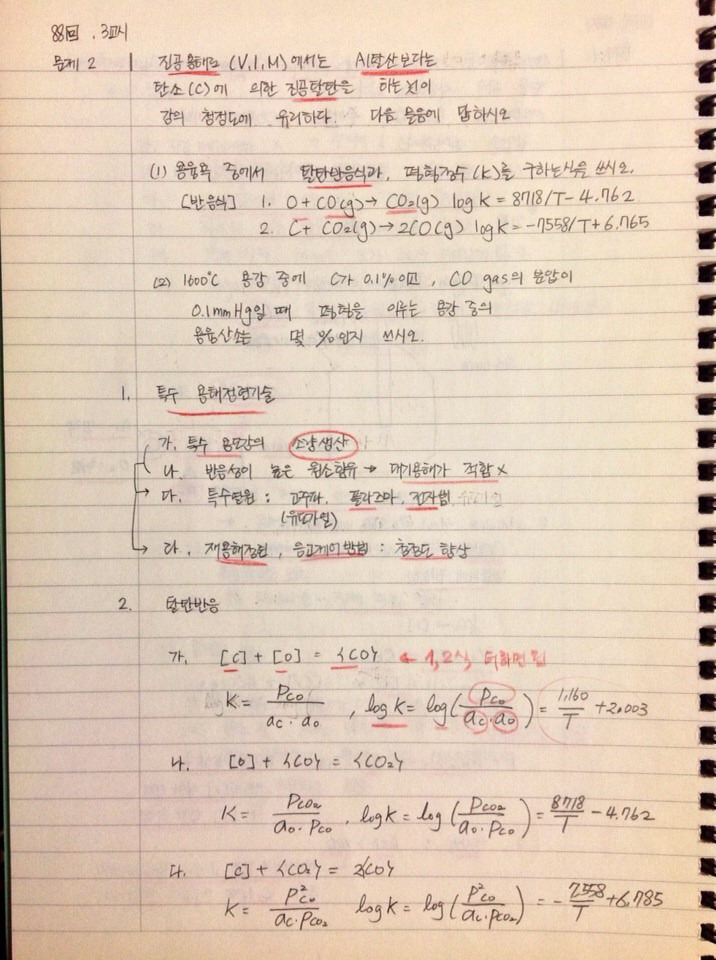 88回. 3교시
문제 2 진공용해로 (V.I.M) 에서는 Al탈산보다는
탄소(C)에 의한 진공탈탄을 하는것이
강의 청정도에 유리하다. 다음 물음에 답하시오
(1) 용융욕 중에서 탈탄반응식과, 평형정수(K)를 구하는식을 쓰시오.
[반응식] 1. O + CO(g) → CO₂(g) log K = 8718/T - 4.762
2. C + CO₂(g) → 2CO(g) log K = -7558/T + 6.765
(2) 1600℃ 용강 중에 C가 0.1%이고, CO gas의 분압이
0.1mmHg일 때 평형을 이루는 용강 중의
용융산소는 몇 %인지 쓰시오.
1. 특수 용해정련기술
가. 특수 용도강의 소량생산
나. 반응성이 높은 원소함유 → 대기용해가 적합 ×
다. 특수열원 : 고주파, 플라즈마, 전자빔
(유도가열)
다. 재용해정련, 응고제어방법 : 청정도 향상
2. 탈탄반응
가. [C] + [O] = {CO} ← 1, 2식 더하면 됨
K = Pco / ac · ao , log K = log (Pco / ac · ao) = 1,160 / T + 2.003
나. [O] + {CO} = {CO₂}
K = Pco₂ / ao · Pco , log K = log (Pco₂ / ao · Pco) = 8718 / T - 4.762
다. [C] + {CO₂} = 2{CO}
K = P²co / ac · Pco₂ log K = log (P²co / ac · Pco₂) = - 7558 / T + 6.785